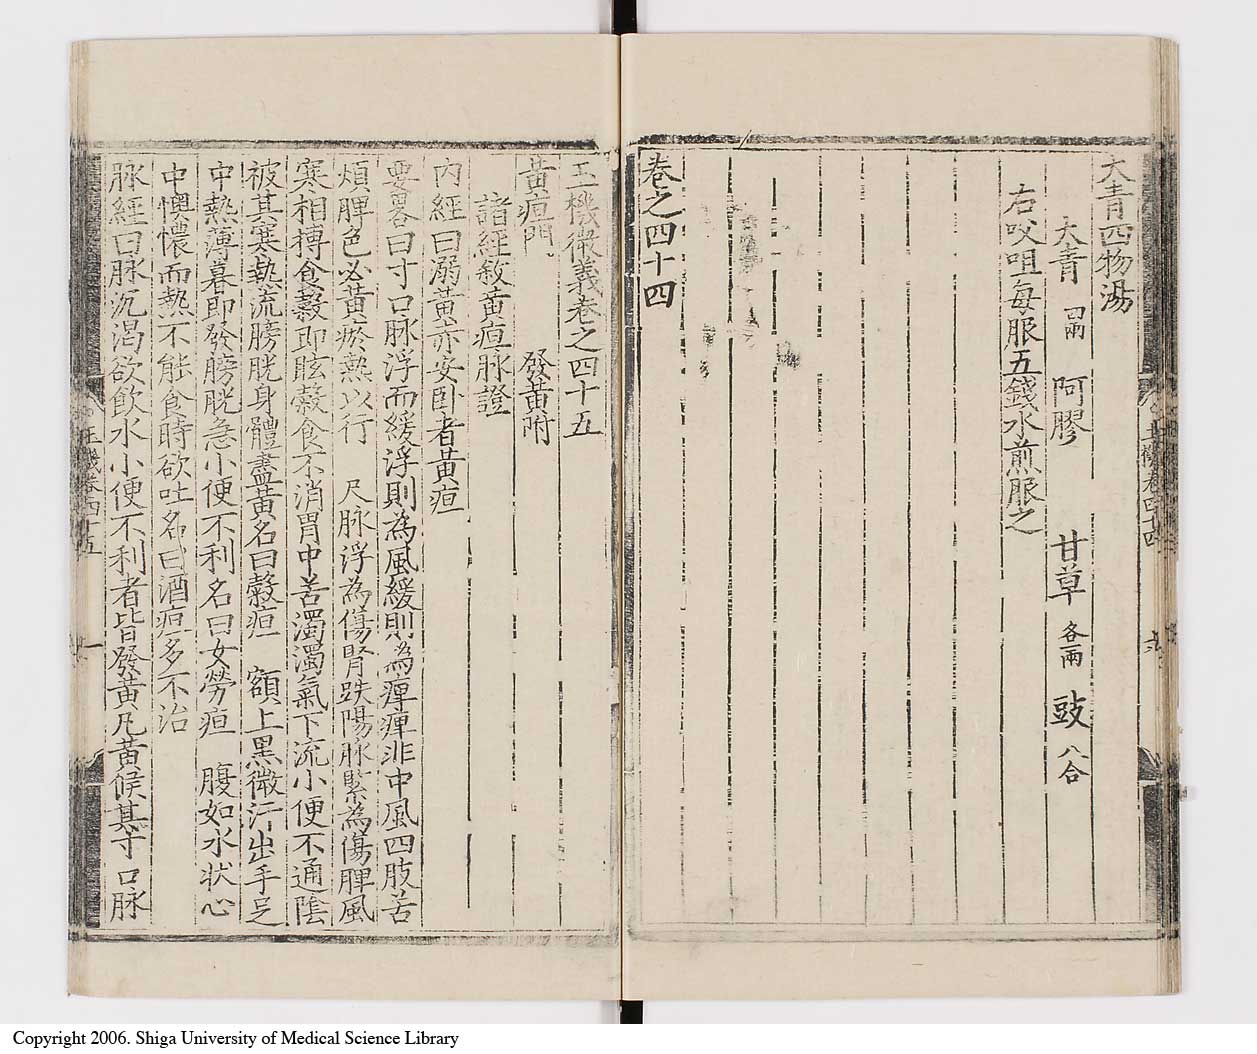 大青四物湯
大青 四兩 阿膠 甘草 各一兩 豉 八合
右㕮咀每服五錢水煎服之
卷之四十四
玉機微義卷之四十五
黃疸門 發黃附
諸經敘黃疸脉證
內經曰溺黃赤安卧者黃疸
要畧曰寸口脉浮而緩浮則為風緩則為痺痺非中風四肢苦
煩脾色必黃瘀熱以行 尺脉浮為傷腎趺陽脉緊為傷脾風
寒相摶食糓即眩糓食不消胃中苦濁濁氣下流小便不通陰
被其寒熱流膀胱身體盡黃名曰糓疸 額上黑微汗出手足
中熱薄暮即發膀胱急小便不利名曰女勞疸 腹如水狀心
中懊憹而熱不能食時欲吐名曰酒疸多不治
脉經曰脉沉渴欲飲水小便不利者皆發黃凡黃候其寸口脉
玉機卷四十五
一
Copyright 2006. Shiga University of Medical Science Library